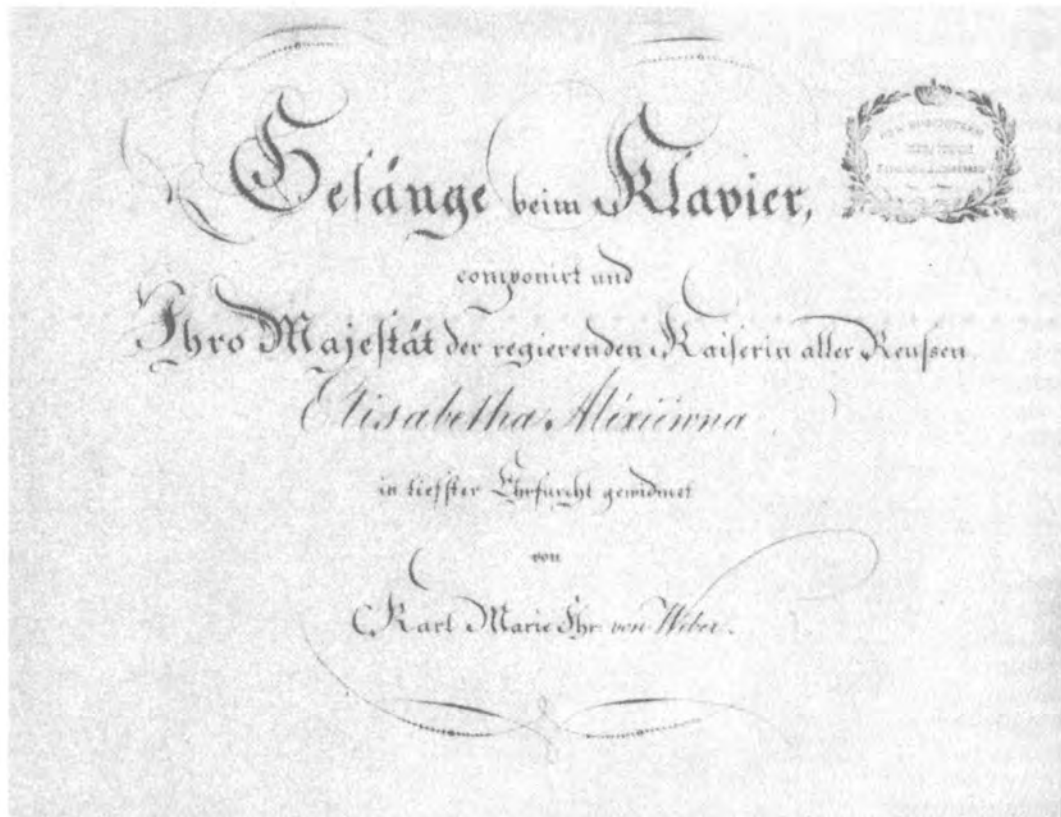 Gesänge beim Klavier,
componirt und
Ihro Majestät der regierenden Kaiserin aller Reussen,
Elisabetha Alexiewna
in tiefster Ehrfurcht gewidmet
von
Karl Marie Fhr. von Weber.